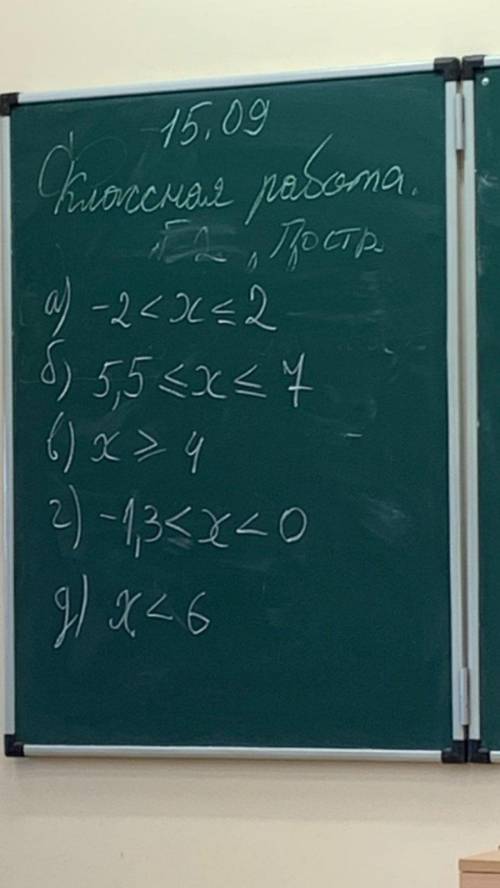 15.09
Классная работа.
2, Постр.
а) -2 < x ≤ 2
б) 5,5 ≤ x ≤ 7
в) x ≥ 4
г) -1,3 < x < 0
д) x < 6